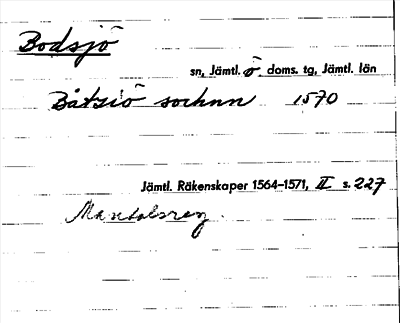 Bodsjö
sn, Jämtl. ö. doms. tg, Jämtl. län
Båtziö sochnn 1570
Jämtl. Räkenskaper 1564-1571, II s. 227
Mantalsreg.